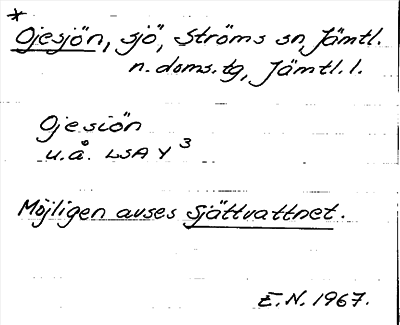 *
Ojesjön, sjö, Ströms sn, Jämtl.
n. doms.tg, Jämtl. l.
Ojesiön
u.å. LSA Y 3
Möjligen avses Sjättvattnet.
E.N. 1967.